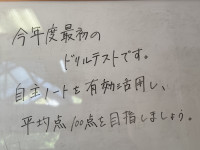 今年度最初の
ドリルテストです。
自主ノートを有効活用し、
平均点100点を目指しましょう。